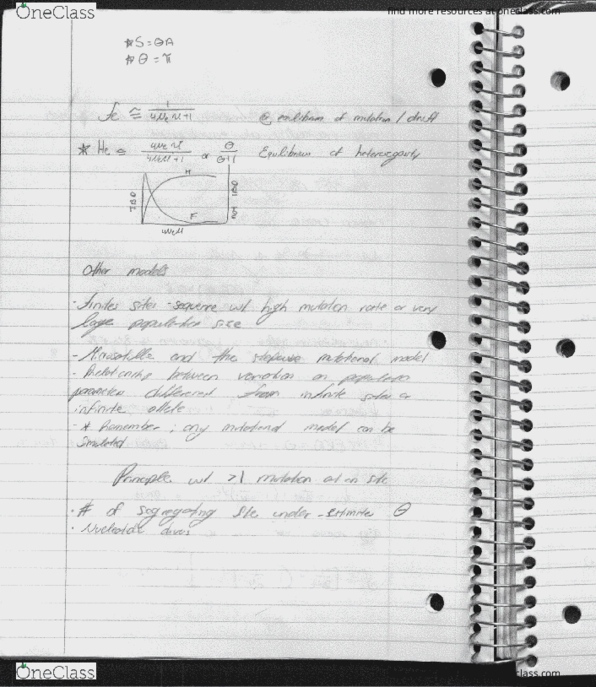 OneClass
find more resources at oneclass.com
* S = θA
* θ = π
≅ 1 / 4NeM+1 @ equilibrium of mutation / drift
* He = 4NeM / 4NeM+1 or θ / θ+1 Equilibrium of heterozygosity
H
F
4NeM
Other models
· finites sites - sequence w/ high mutation rate or very
large population size
- and the stepwise mutational model
- Relationship between variation on population
different from infinite sites or
infinite allele
- * Remember ; any mutational model can be
simulated
Principle w/ >1 mutation at a site
· # of segregating site under-estimate θ
· Nucleotide
OneClass
oneclass.com